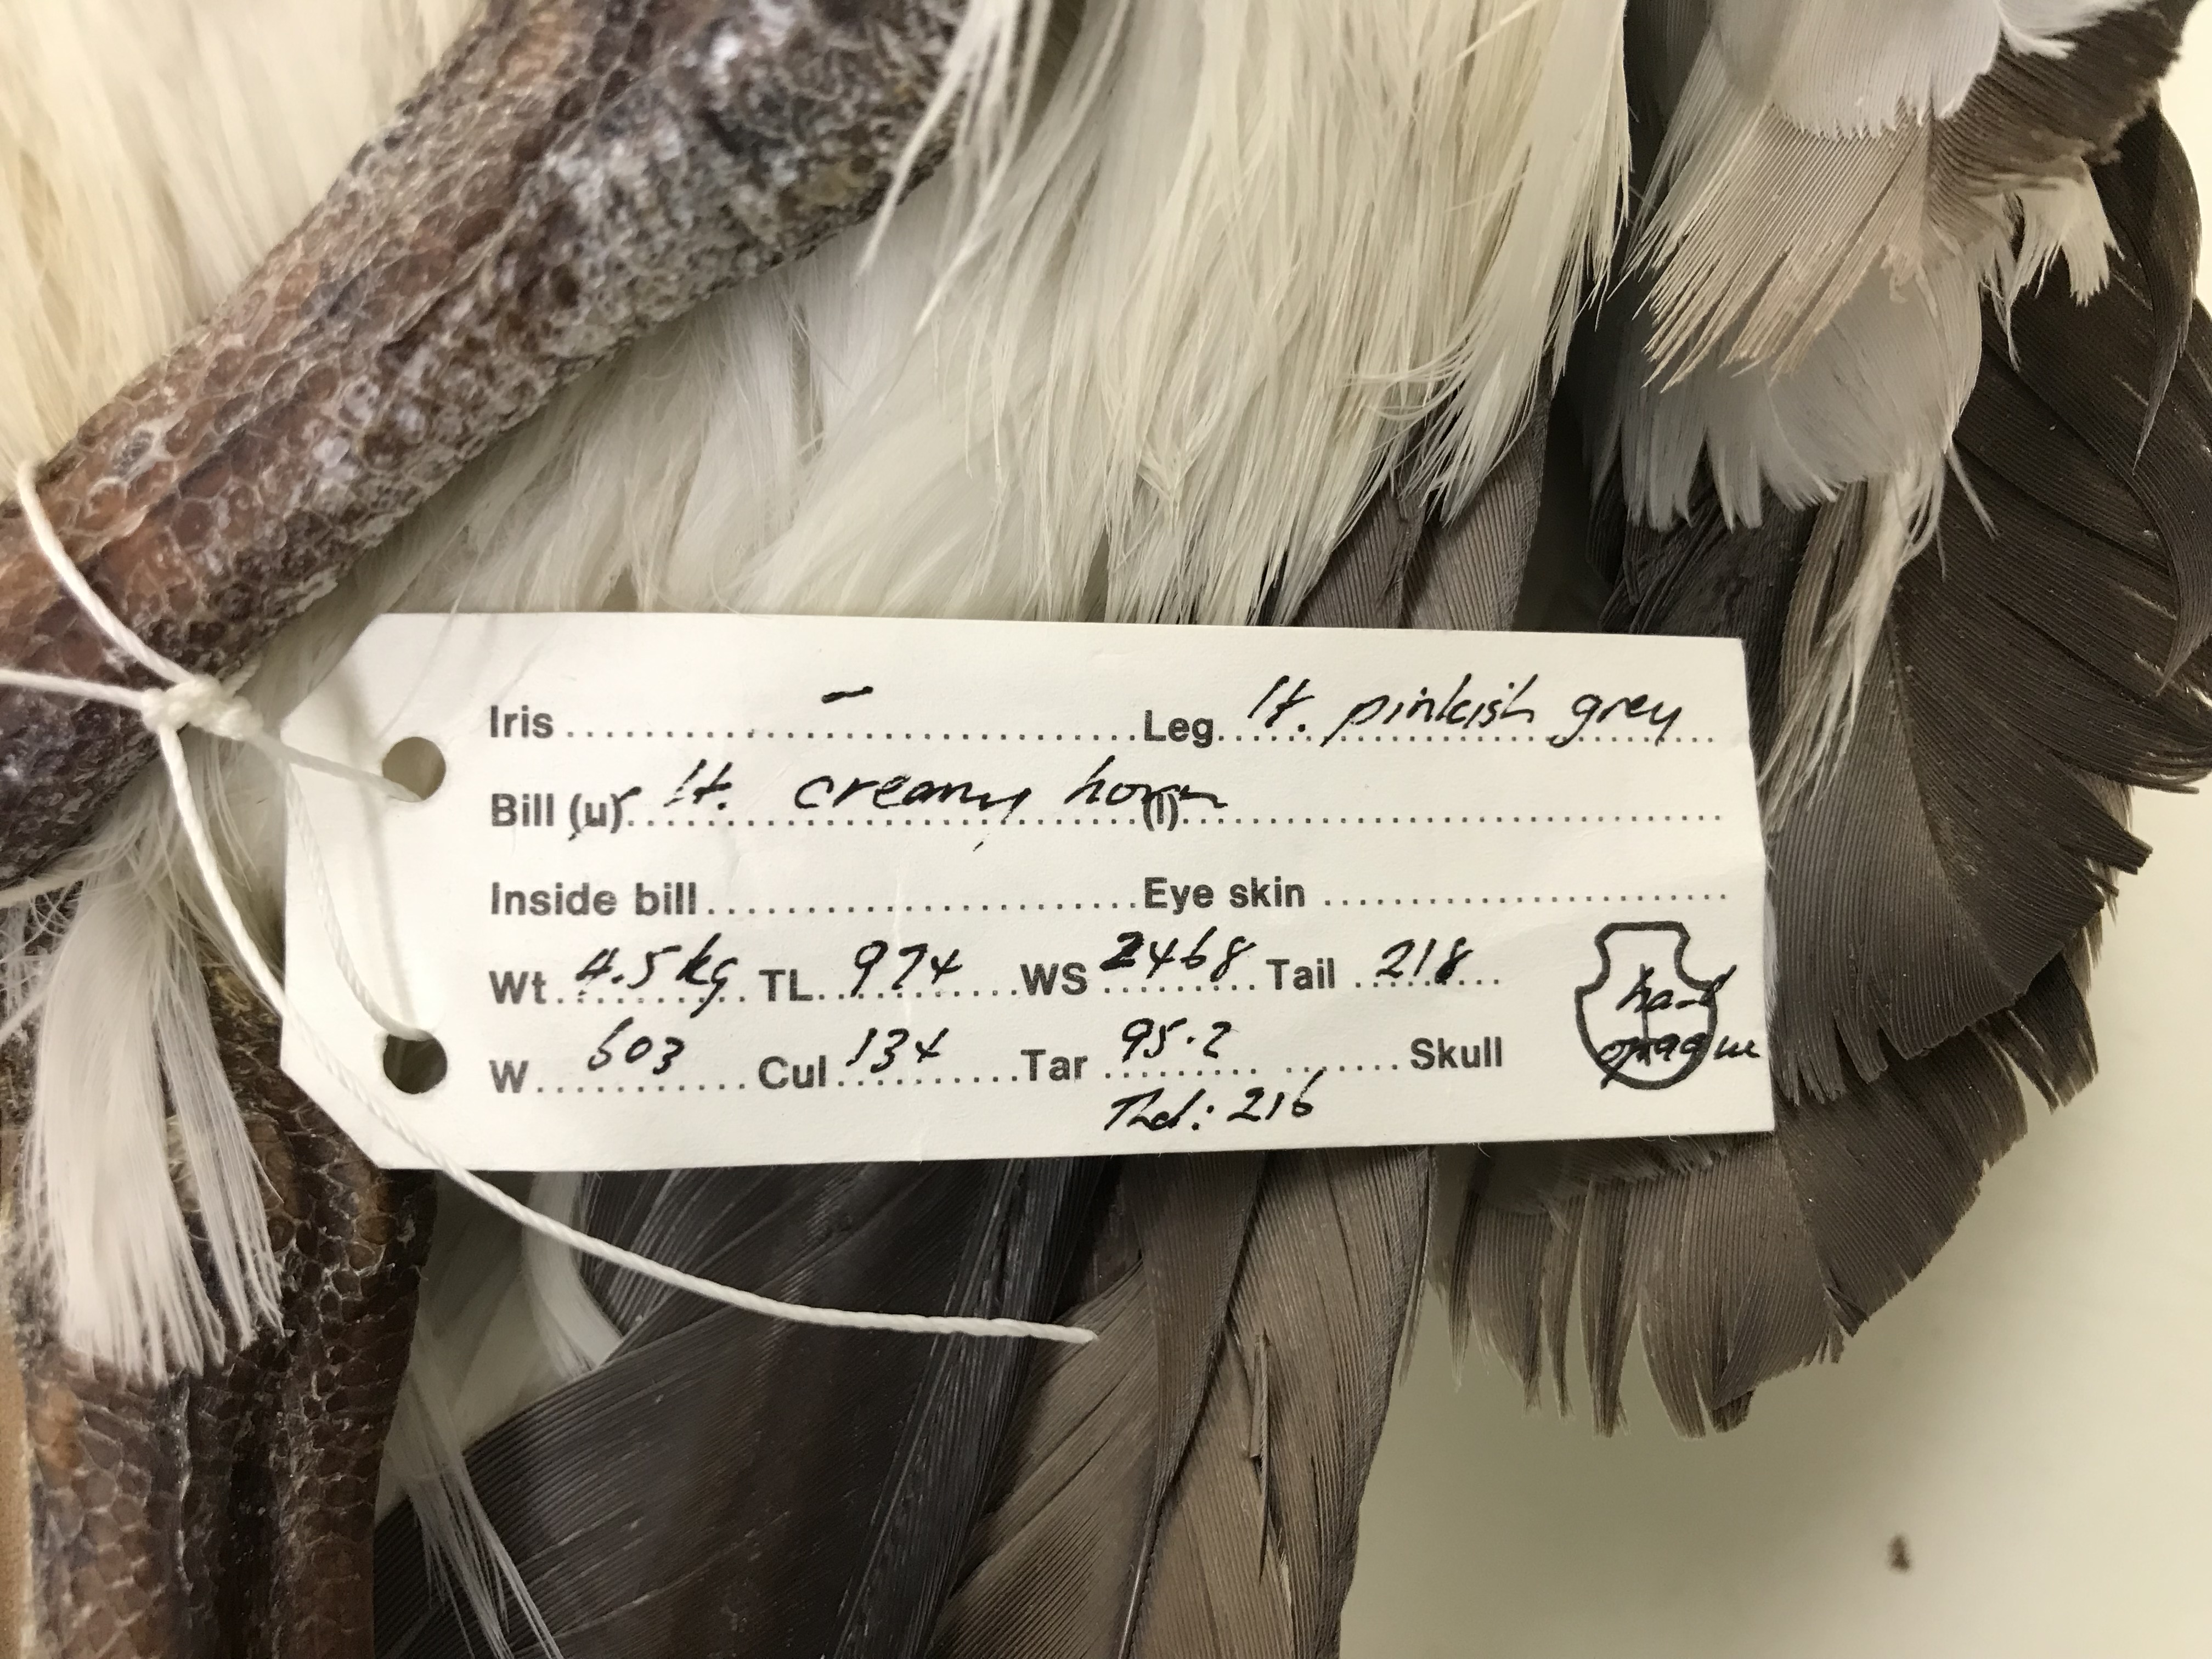 Iris – Leg lt. pinkish grey
Bill (u) lt. creamy horn (l)
Inside bill Eye skin
Wt. 4.5 kg TL 974 WS 2468 Tail 218
W. 603 Cul 134 Tar 95.2 Skull
216